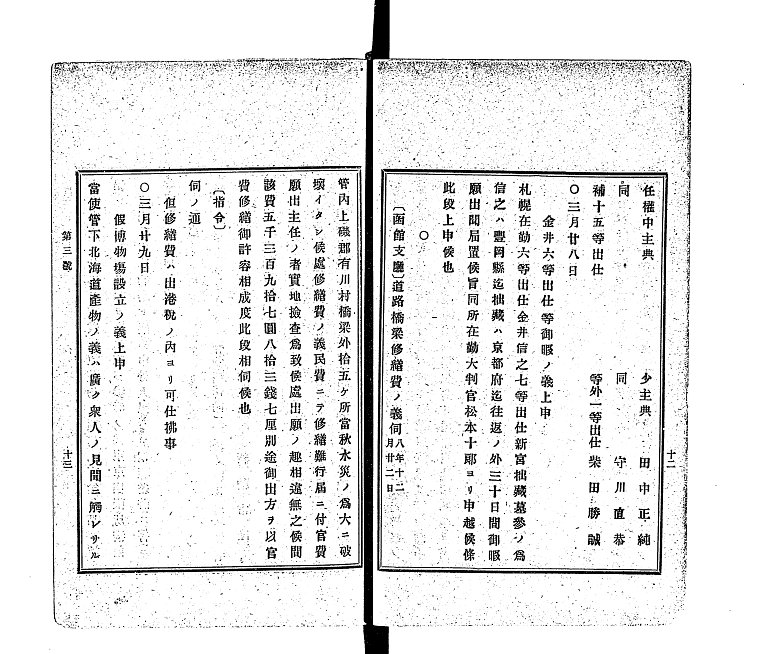 任權中主典　少主典　田中正純
同　同　守川直恭
補十五等出仕　等外一等出仕　柴田勝誠
〇三月廿八日
金井六等出仕等御暇ノ義上申
札幌在勤六等出仕金井信之七等出仕新宮拙藏墓參ノ爲
信之ハ豐岡縣迄拙藏ハ京都府迄往返ノ外三十日間御暇
願出聞届置候旨同所在勤大判官松本十郎ヨリ申越候條
此段上申候也
〇
〔函館支廳〕道路橋梁修繕費ノ義伺 八年十二月廿二日
十二
管内上磯郡有川村橋梁外拾五ケ所當秋水災ノ爲大ニ破
壞イタシ候處修繕費ノ義民費ニテ修繕難行届ニ付官費
願出主任ノ者實地撿査爲致候處出願ノ趣相違無之候間
該費五千三百九拾七圓八拾三錢七厘別途御出方ヲ以官
費修繕御許容相成度此段相伺候也
〔指令〕
伺ノ通
但修繕費ハ出港税ノ内ヨリ可仕拂事
〇三月廿九日
假博物塲設立ノ義上申
當使管下北海道產物ノ義ハ廣ク衆人ノ見聞ニ觸レサル
第三號
十三